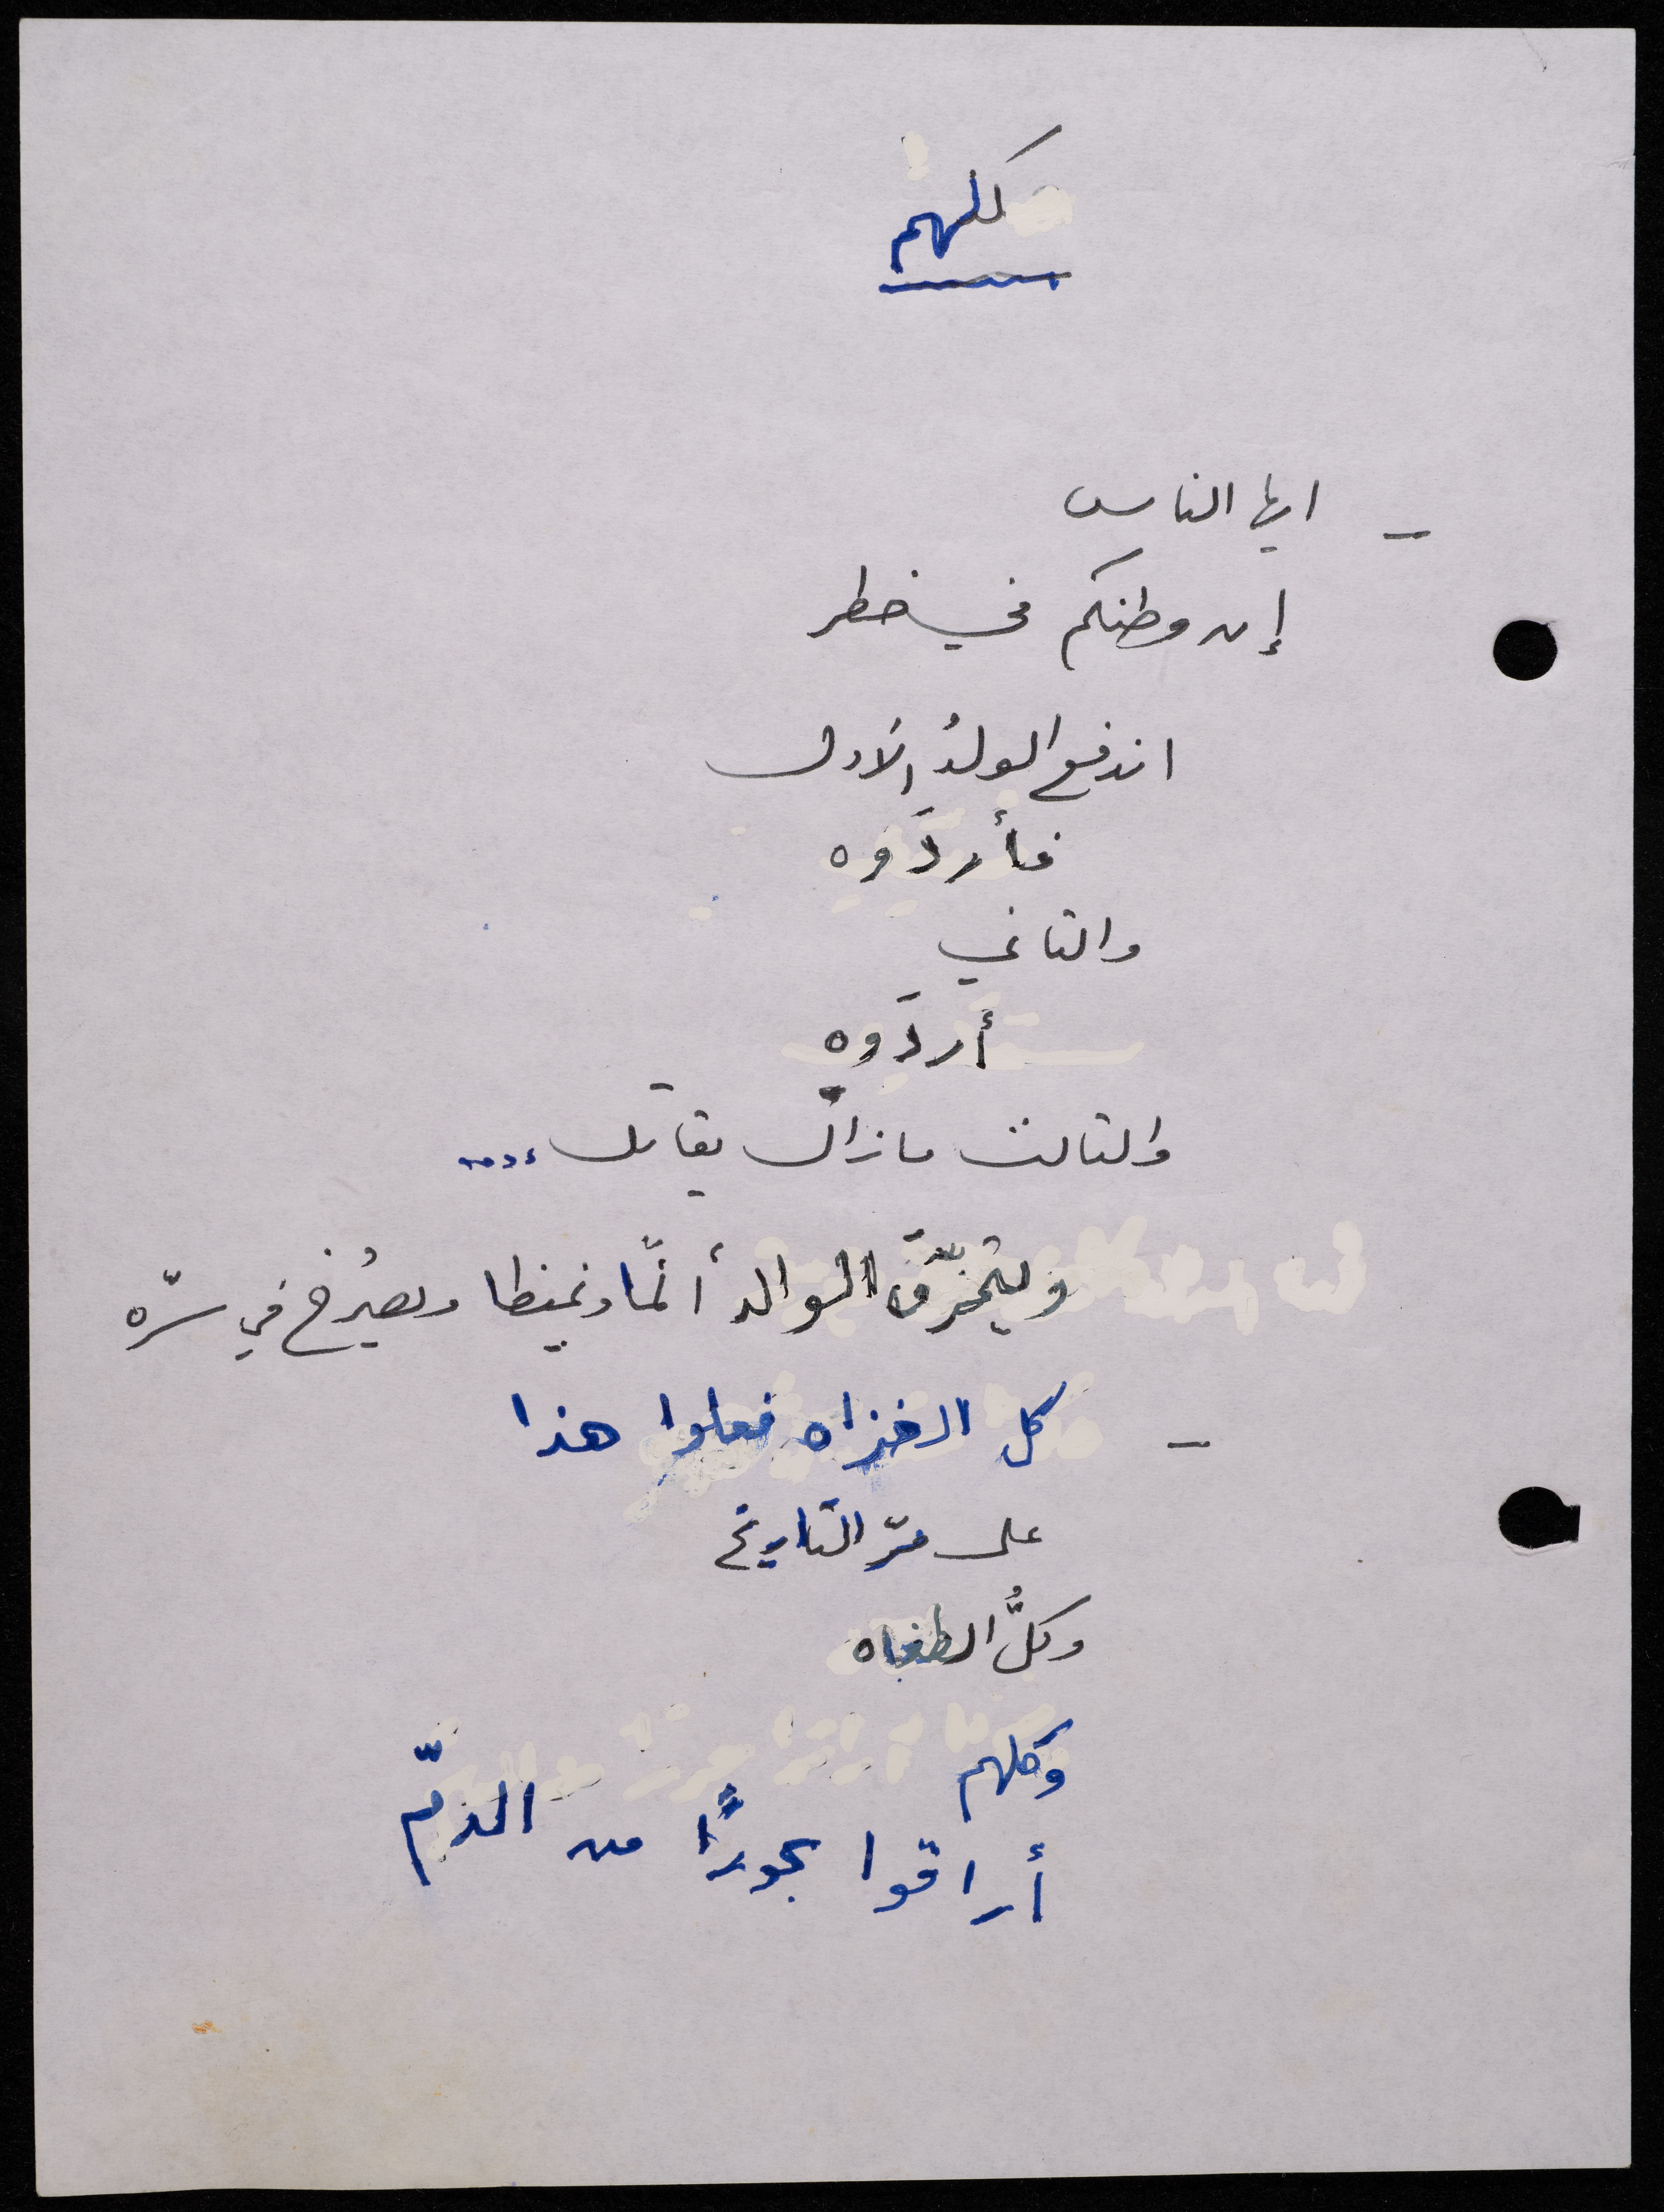 كلهم
– ايها الناس
إن وطنكم في خطر
اندفع الولدُ الأول
فأردَوه
والثاني
أردَوه
والثالث ما زال يقاتل ....
ويتحرّق الوالد ألمًا وغيظا ويصرُخ في سرّه
– كل الغزاه فعلوا هذا
على مرّ التاريخ
وكلُّ الطغاه
وكلهم
أراقوا بحورًا من الدمّ